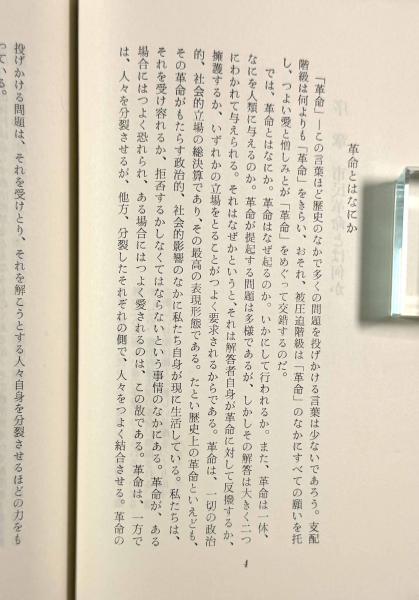 革命とはなにか
「革命」―この言葉ほど歴史のなかで多くの問題を投げかける言葉は少ないであろう。支配
階級は何よりも「革命」をきらい、おそれ、被圧迫階級は「革命」のなかにすべての願いを托
し、つよい愛と憎しみとが「革命」をめぐって交錯するのだ。
では、革命とはなにか。革命はなぜ起るのか。いかにして行われるか。また、革命は一体、
なにを人類に与えるのか。革命が提起する問題は多様であるが、しかしその解答は大きく二つ
にわかれて与えられる。それはなぜかというと、それは解答者自身が革命に対して反撥するか、
擁護するか、いずれかの立場をとることがつよく要求されるからである。革命は、一切の政治
的、社会的立場の総決算であり、その最高の表現形態である。たとい歴史上の革命といえども、
その革命がもたらす政治的、社会的影響のなかに私たち自身が現に生活している。私たちは、
それを受け容れるか、拒否するかしなくてはならないという事情のなかにある。革命が、ある
場合にはつよく恐れられ、ある場合にはつよく愛されるのは、この故である。革命は、一方で
は、人々を分裂させるが、他方、分裂したそれぞれの側で、人々をつよく結合させる。革命の
4
投げかける問題は、それを受けとり、それを解こうとする人々自身を分裂させるほどの力をも
っている。